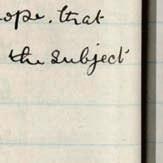 ope. that
the subject